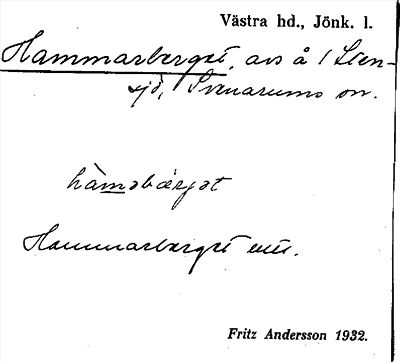 Västra hd., Jönk. l.
Hammarberget, avs å / Sten-
sjö, Svenarums sn.
hàmabærjət
Hammarberget enl.
Fritz Andersson 1932.